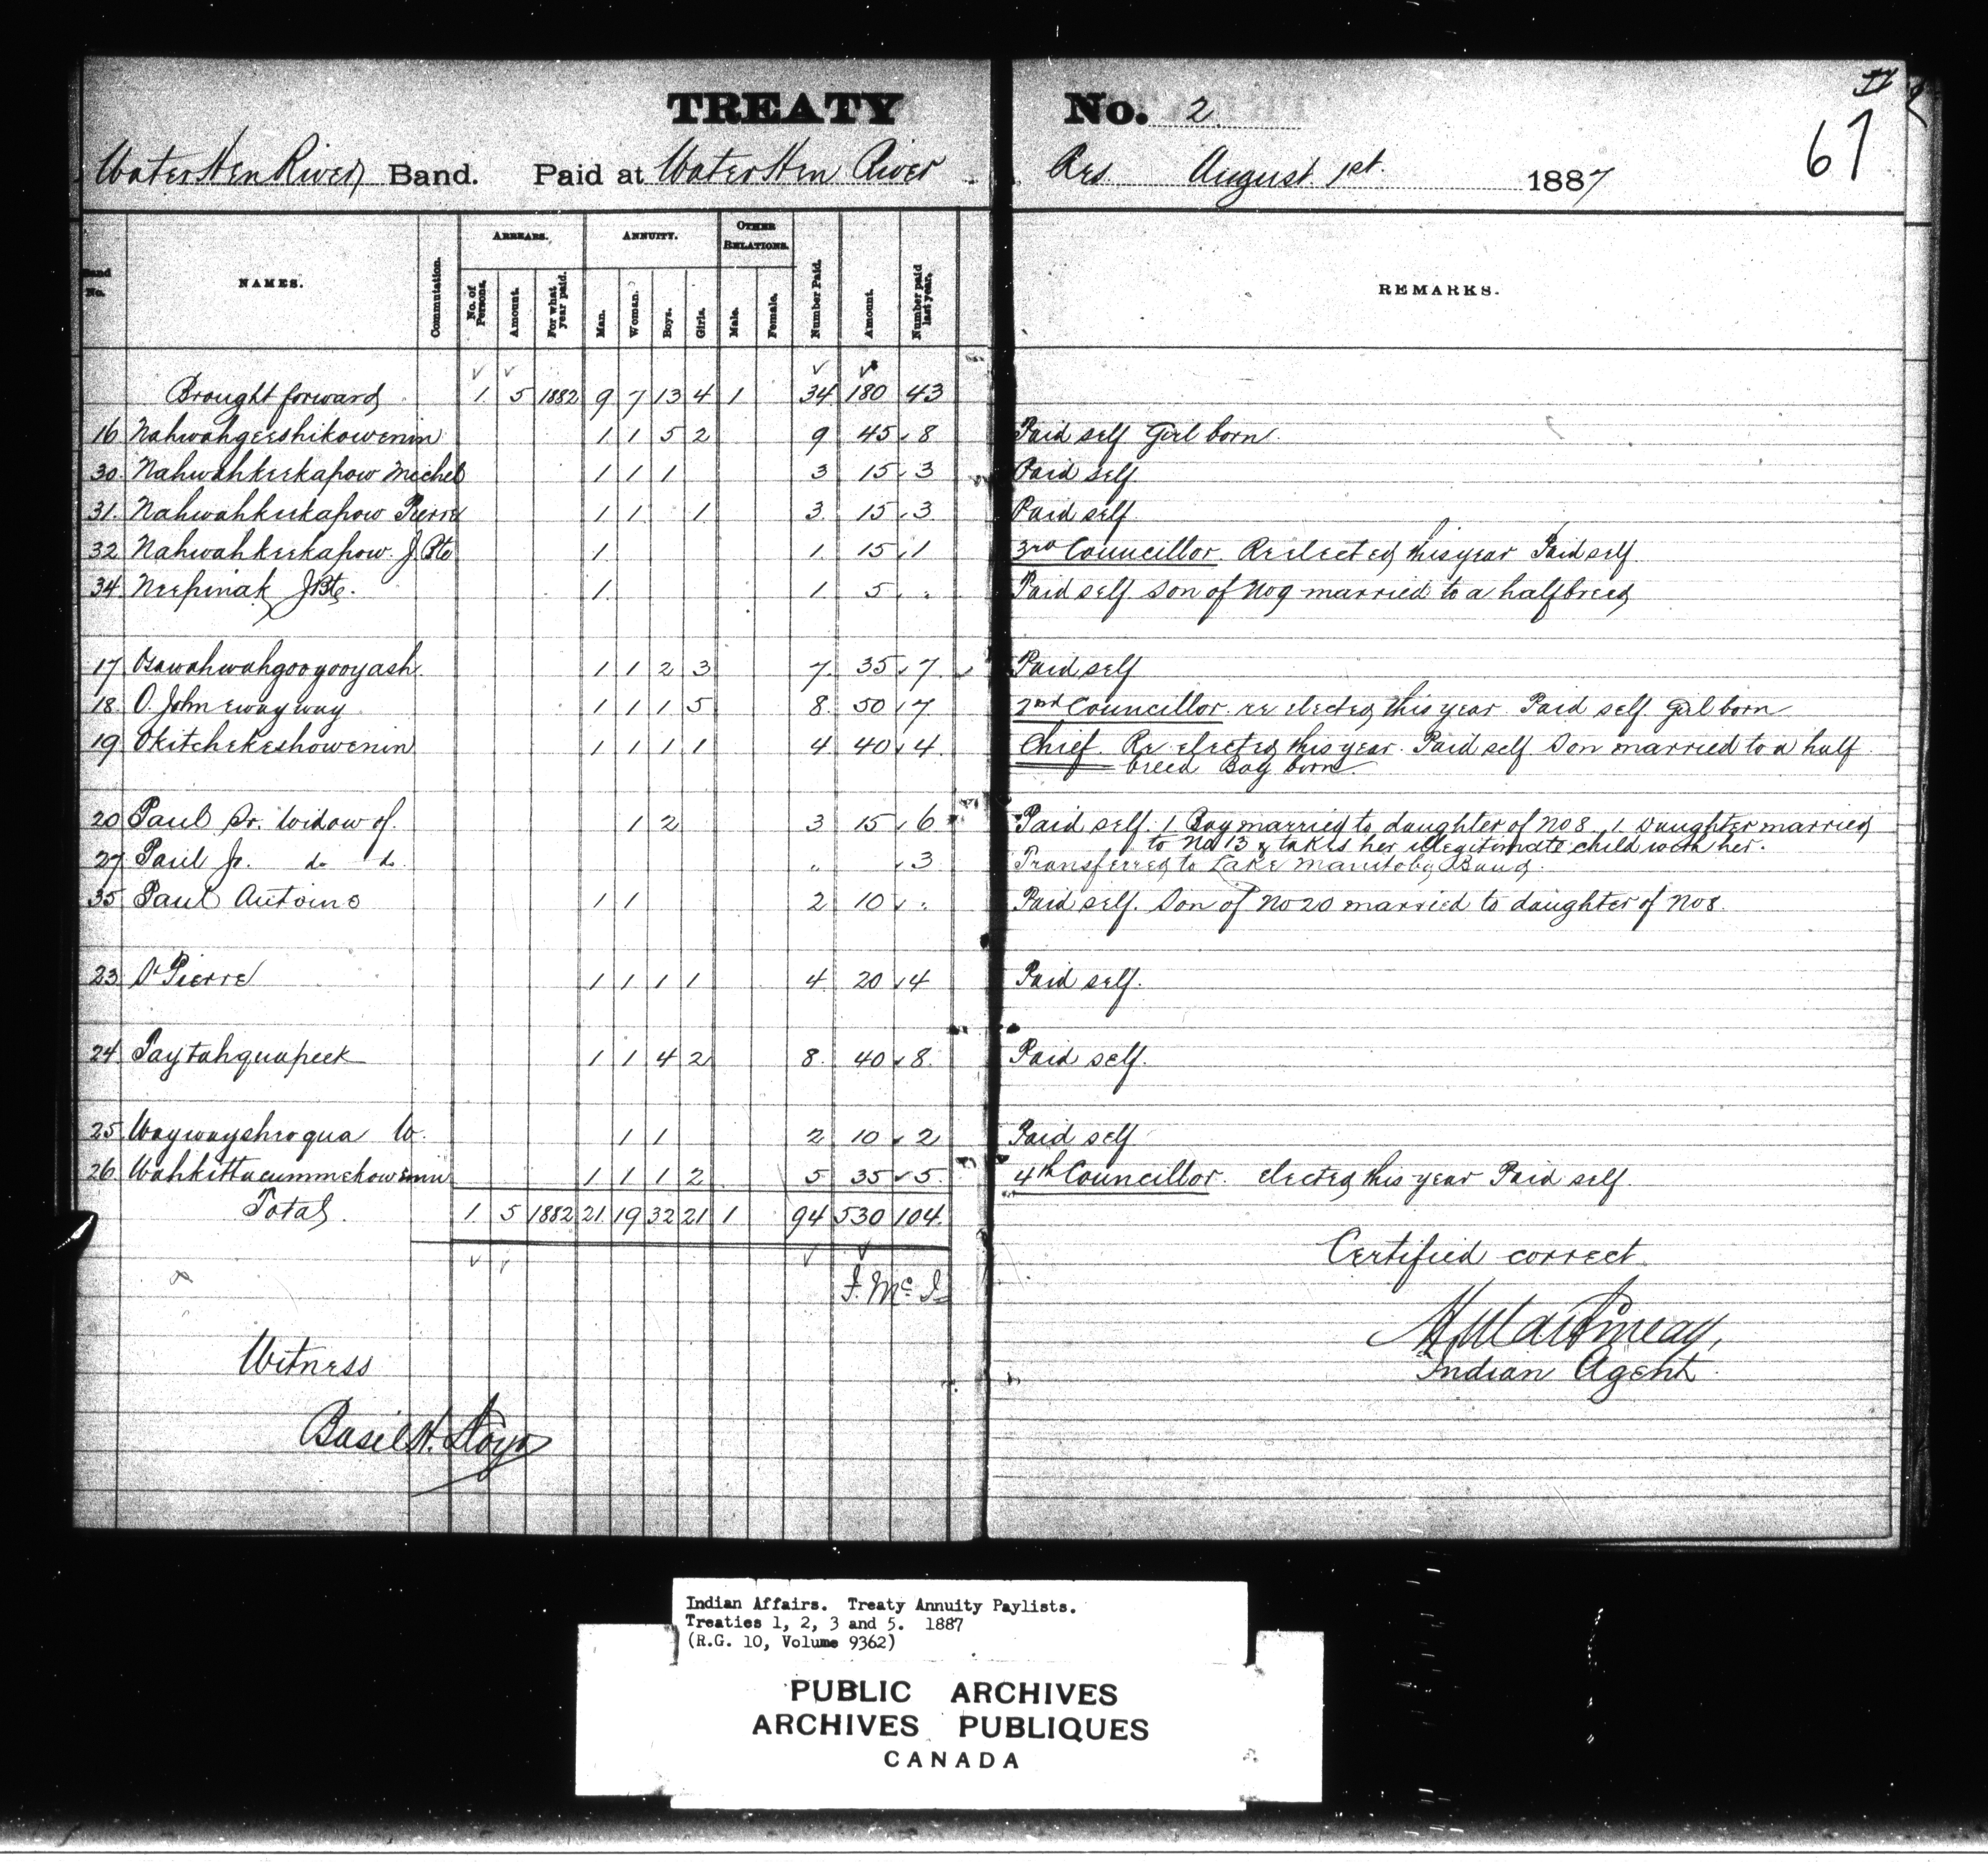 TREATY No. 2
67
Water Hen River Band. Paid at Water Hen River Res. August 1st. 1887
Band No. NAMES. Commutation. ARREARS. ANNUITY. OTHER RELATIONS. Number Paid. Amount. Number paid last year. REMARKS.
No. of Persons. Amount. For what year paid. Man. Woman. Boys. Girls. Male. Female.
Brought forward 1 5 1882 9 7 13 4 1 34 180 43
16 Nahwahgeeshikowenin 1 1 5 2 9 45 8 Paid self Girl born.
30 Nahwahkeekapow Michel 1 1 1 3 15 3 Paid self.
31 Nahwahkeekapow Pierre 1 1 1 3 15 3 Paid self
32 Nahwahkeekapow J. Bte 1 1 15 1 3rd Councillor Reelected this year Paid self
34 Neepinak J Bte. 1 1 5 " Paid self son of No 9 married to a halfbreed
17 Osawahwahgoogooyash 1 1 2 3 7 35 7 Paid self
18 O. John ewayway 1 1 1 5 8 50 7 2nd Councillor re elected this year Paid self Girl born
19 Okitchekeshowenin 1 1 1 1 4 40 4 Chief Re elected this year. Paid self Son married to a half
breed Boy born.
20 Paul Sr. Widow of. 1 2 3 15 6 Paid self 1 Boy married to daughter of No 8. 1 Daughter married
to No 13 & takes her illegitimate child with her.
27 Paul Jr. do do " 3 Transferred to Lake Manitoba Band.
35 Paul Antoine 1 1 2 10 " Paid self. Son of No 20 married to daughter of No 8.
23 St Pierre 1 1 1 1 4 20 4 Paid self.
24 Taytahquapeek 1 1 4 2 8 40 8 Paid self.
25 Waywayshroqua W. 1 1 2 10 2 Paid self
26 Wahkittacummekowenin 1 1 1 2 5 35 5 4th Councillor. elected this year Paid self.
Total 1 5 1882 21 19 32 21 1 94 530 104
Certified correct
Indian Agent
Witness
Basil H.
Indian Affairs. Treaty Annuity Paylists.
Treaties 1, 2, 3 and 5. 1887
(R.G. 10, Volume 9362)
PUBLIC ARCHIVES
ARCHIVES PUBLIQUES
CANADA